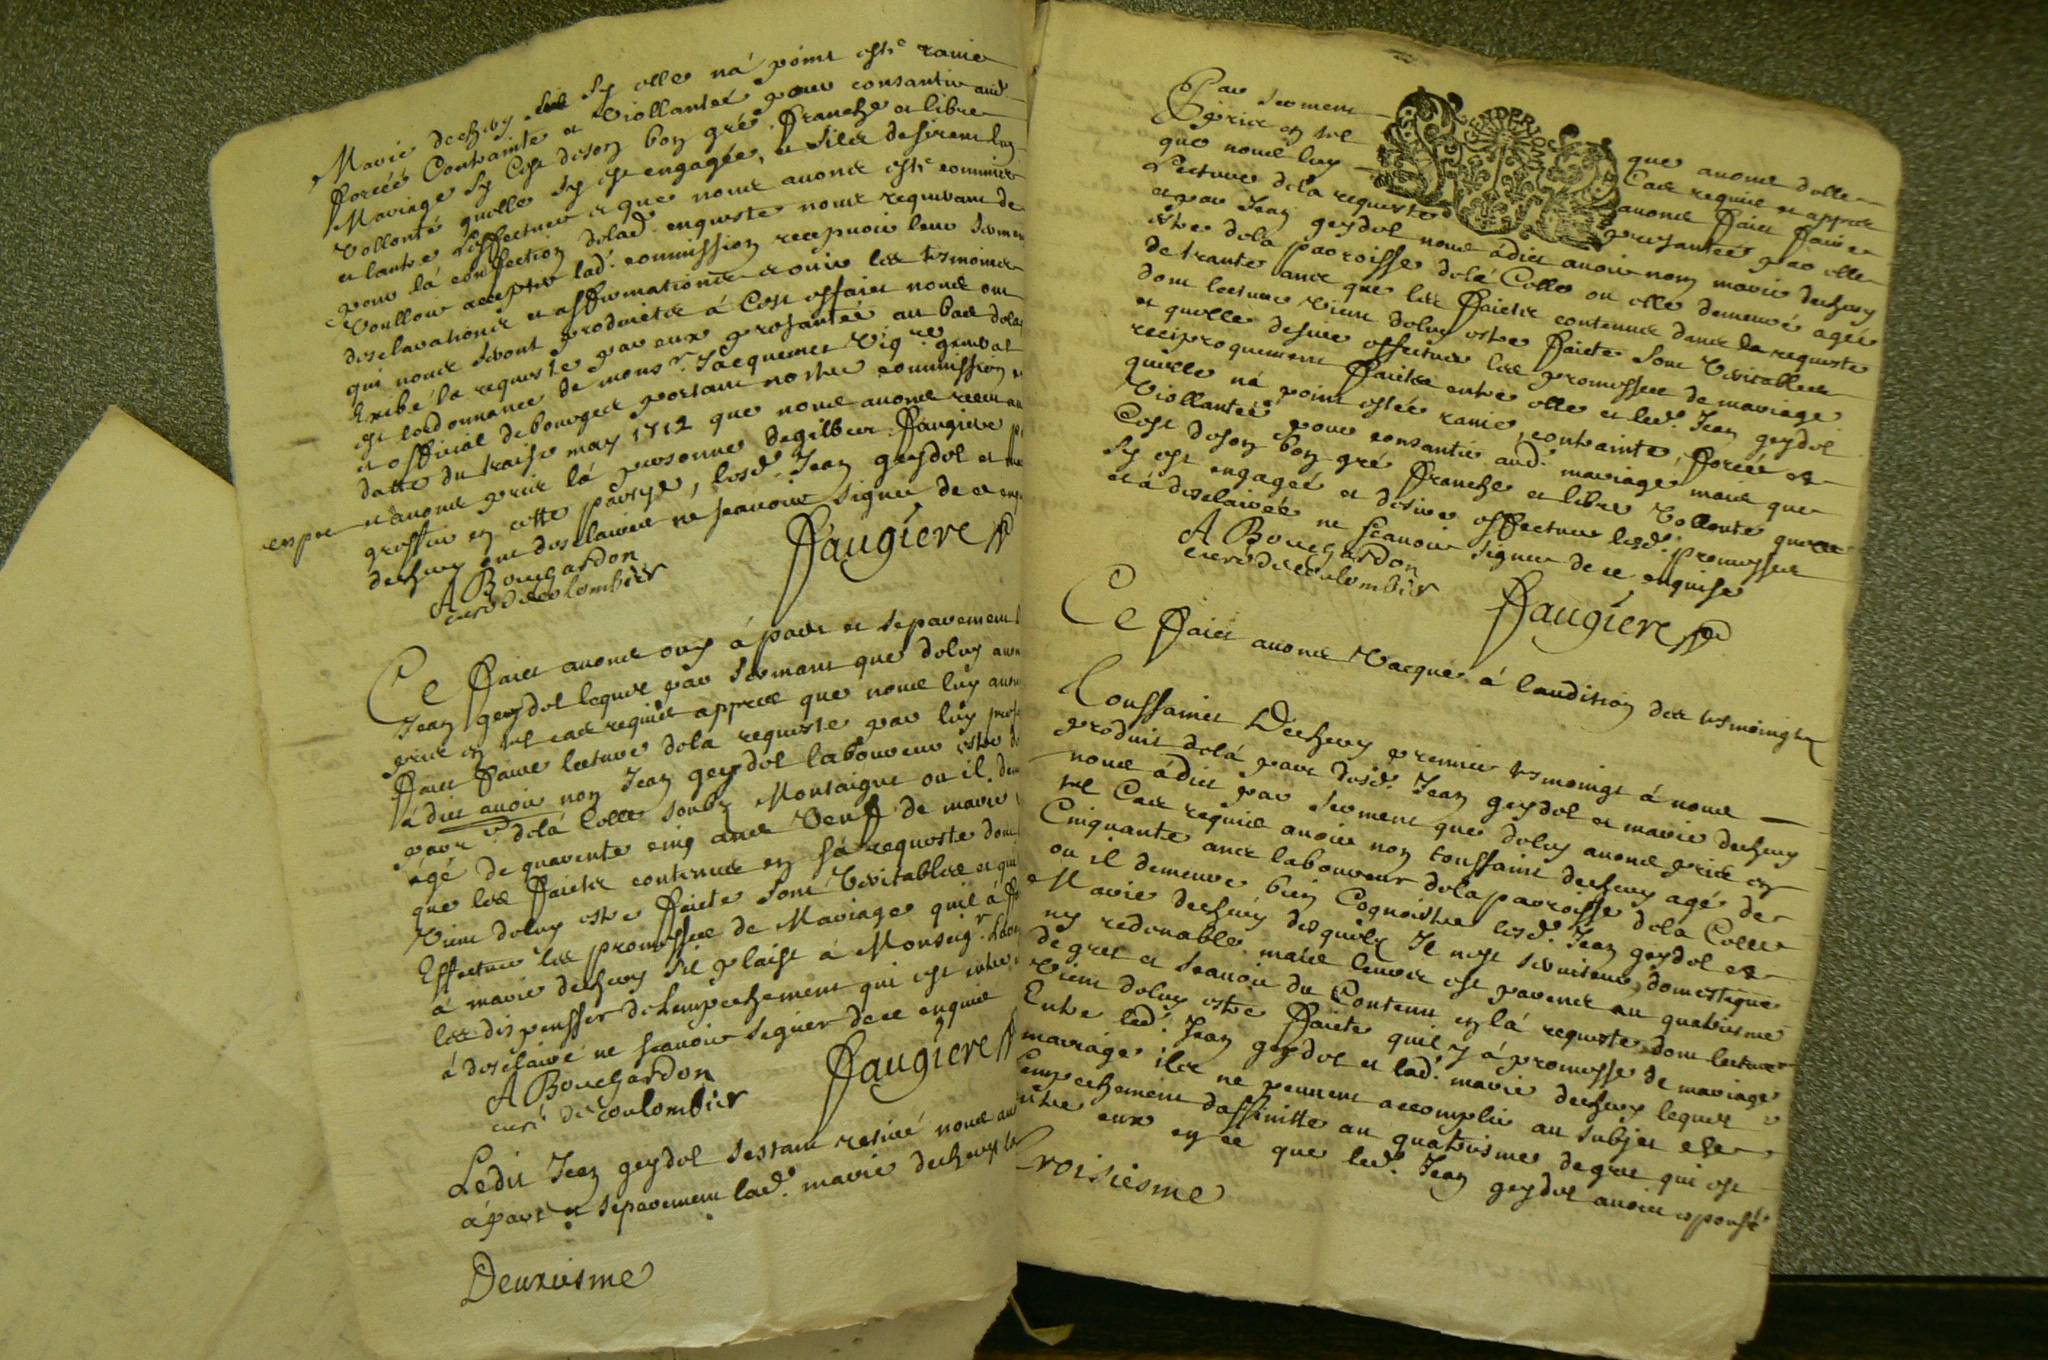 Marie dechery Sy elle na point esté ravie
forcéé Contrainte et Viollantéé pour consantir aud.
Mariage Sy Cest deson bon gré franche et libre
Vollonté quelle Sy est engagéé, et Silz desirent lun
et lautre Leffectuer et que nous avons esté commis
pour lá confection delad. enqueste nous requerant de
Voulloir accepter lad. commission recepvoir leur serment
desclarations et affirmations et ouir les tesmoins
qui nous seront produictz á Cest effaict nous ont
Exibé la requeste par eux presantéé au bas delaq
est lordonnance de monsr. Jacquemet Vicre. general
et official de bourges portant nostre commission en
datte du traise may 1712 que nous avons receu av
et avons pris lá personne degilber faugiere pr
greffier en cette partye, lesd. Jean geydol et ma
dechery ont desclairéé ne scavoir signer de ce enqu
A Bouchardon
curé de colombier
faugiere
Ce faict avons ouy á part et separement l
Jean geydol lequel par serment que deluy avon
pris en tel cas requis appres que nous luy avons
faict faire lecture dela requeste par luy pres
a dict avoir non Jean geydol laboureur estre de
parr. delá Celle soubz Montaigut ou il dem
ágé de quarente cinq ans Veuf de marie
que les faictz contenus en sá requeste dont
Vient deluy estre faicte sont Veritables et qui
Effectuer les promesses de Mariage quil á f
á marie dechery sil plaist á Monseigr. Larc
les dispensser de lempechement qui est entre
á desclairé ne scavoir signer dece enquis
A Bouchardon
curé de coulombier
faugiere
Ledit Jean geydol sestant retiré nous av
ápart et separement lad. marie dechery la
Deuxiesme
Par serment que avons delle
Pris en tel Cas requis et appres
que nous luy avons faict faire
Lecture dela requeste presantéé par elle
et par Jean geydol nous ádict avoir nom marie dechery
estre dela parroisse delá Celle ou elle demeure agéé
de trante ans que les faictz contenus dans la requeste
dont lecture Vient deluy estre faicte sont Veritables
et quelle desire effectuer les promesses de mariage
reciproquement faictes entre elle et led. Jean geydol
quelle ná point estéé ravie, contrainte, forcéé et
Viollantéé pour consantir aud. mariage mais que
Cest deson bon gré franche et libre Vollonte quelle
sy est engagéé et desire effectuer lesd. promesses
et á desclairéé ne scavoir signer de ce enquise
A Bouchardon
curé de coulombier
faugiere
Ce faict avons Vacqué á laudition des tesmoingtz
Toussainct Dechery premier tesmoingt á nous
produit delá part desd. Jean geydol et marie dechery
nous ádict par serment que deluy avons pris en
tel Cas requis avoir non toussaint dechery agé de
Cinquante ans laboureur dela parroisse dela Celle
ou il demeure bien Cognoistre lesd. Jean geydol et
Marie dechery desquelz Il nest serviteur, domestique
ny redevable mais leurs est parent au quatriesme
degret et scavoir du Contenu en lá requeste dont lecture
Vient deluy estre faicte quil y á promesse de mariage
Entre led. Jean geydol et lad. marie dechery lequel
mariage ils ne peuvent accomplir au subjet
Empechement daffinitte au quatriesme degret qui est
entre eux en ce que led. Jean geydol avoict espousé
Troisiesme